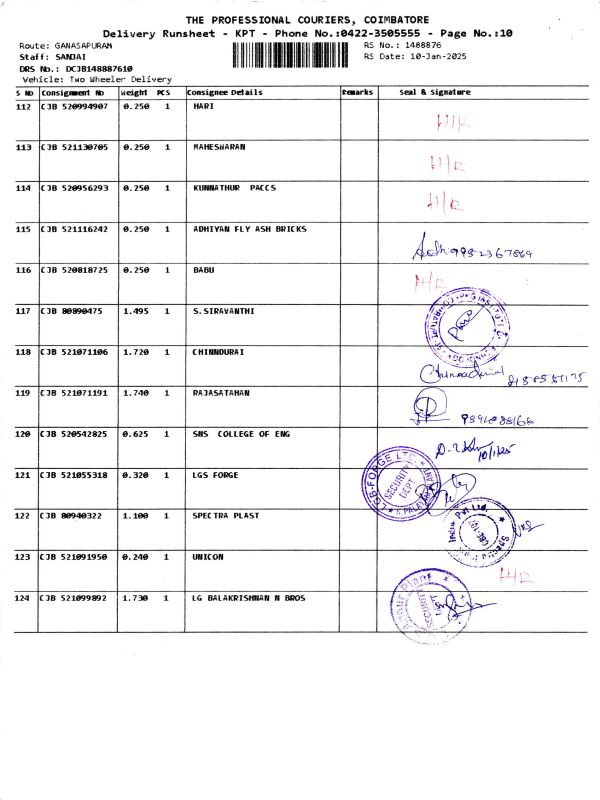 THE PROFESSIONAL COURIERS, COIMBATORE
Delivery Runsheet - KPT - Phone No.:0422-3505555 - Page No.:10
Route: GANASAPURAM RS No.: 1488876
Staff: SANJAI RS Date: 10-Jan-2025
DRS No.: DCJB148887610
Vehicle: Two Wheeler Delivery
S No Consignment No Weight PCS Consignee Details Remarks Seal & Signature
112 CJB 520994907 0.250 1 HARI H/R
113 CJB 521130705 0.250 1 MAHESWARAN H/R
114 CJB 520956293 0.250 1 KUNNATHUR PACCS H/R
115 CJB 521116242 0.250 1 ADHIYAN FLY ASH BRICKS
116 CJB 520818725 0.250 1 BABU H/R
117 CJB 80890475 1.495 1 S.SIRAVANTHI
118 CJB 521071106 1.720 1 CHINNDURAI
119 CJB 521071191 1.740 1 RAJASATAHAN
120 CJB 520542825 0.625 1 SNS COLLEGE OF ENG 10/1/25
121 CJB 521055318 0.320 1 LGS FORGE LGB-FORGE LTD. SECURITY DEPT
122 CJB 80940322 1.100 1 SPECTRA PLAST India Pvt Ltd.
123 CJB 521091950 0.240 1 UNICON H/R
124 CJB 521099892 1.730 1 LG BALAKRISHNAN N BROS SECURITY DEPT